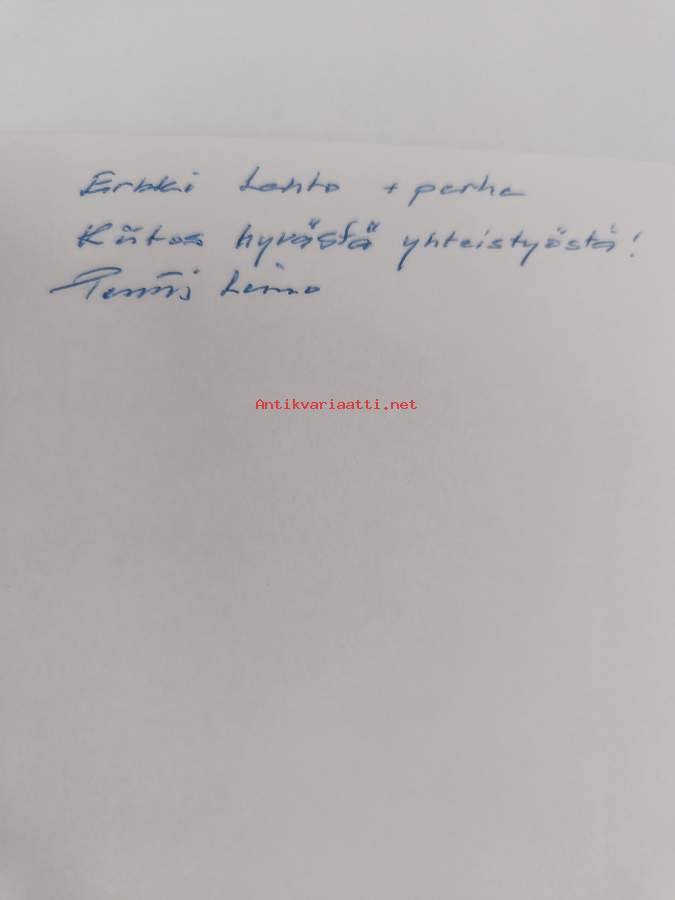 Erkki Lahto + perhe
Kiitos hyvästä yhteistyöstä!
Leino
Antikvariaatti.net